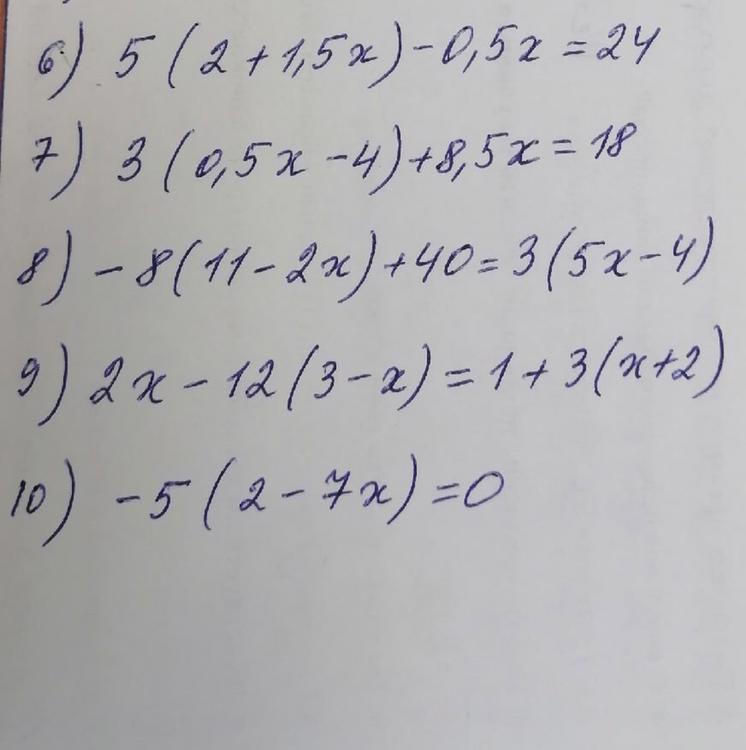 6) 5(2+1,5x)-0,5x=24
7) 3(0,5x-4)+8,5x=18
8) -8(11-2x)+40=3(5x-4)
9) 2x-12(3-x)=1+3(x+2)
10) -5(2-7x)=0